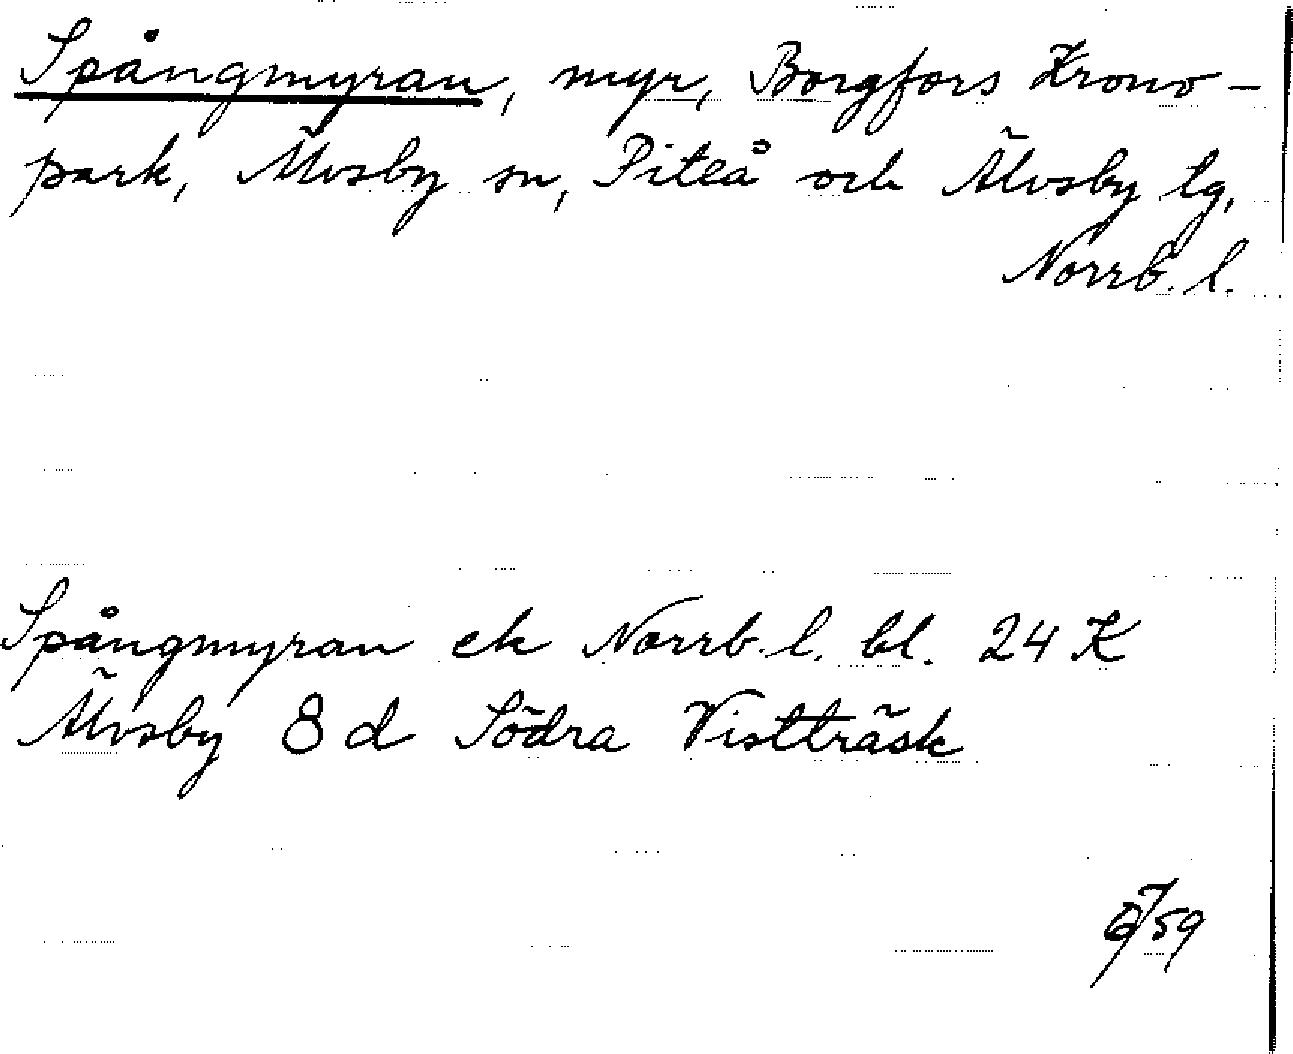 Spångmyran, myr, Borgfors Krono-
park, Älvsby sn, Piteå och Älvsby lg,
Norrb. l.
Spångmyran ek Norrb. l. bl. 24 K
Älvsby 8 d Södra Vistträsk
59